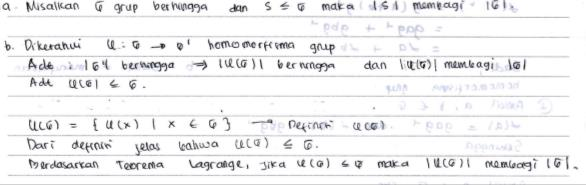 a. Misalkan G grup berhingga dan S ≤ G maka |S| membagi |G|.
b. Diketahui φ : G → G' homomorfisma grup
Adt : |G| berhingga ⇒ |φ(G)| berhingga dan |φ(G)| membagi |G|
Adt φ(G) ≤ G.
φ(G) = { φ(x) | x ∈ G } → Definisi φ(G).
Dari definisi jelas bahwa φ(G) ≤ G.
Berdasarkan Teorema Lagrange, jika φ(G) ≤ G maka |φ(G)| membagi |G|.